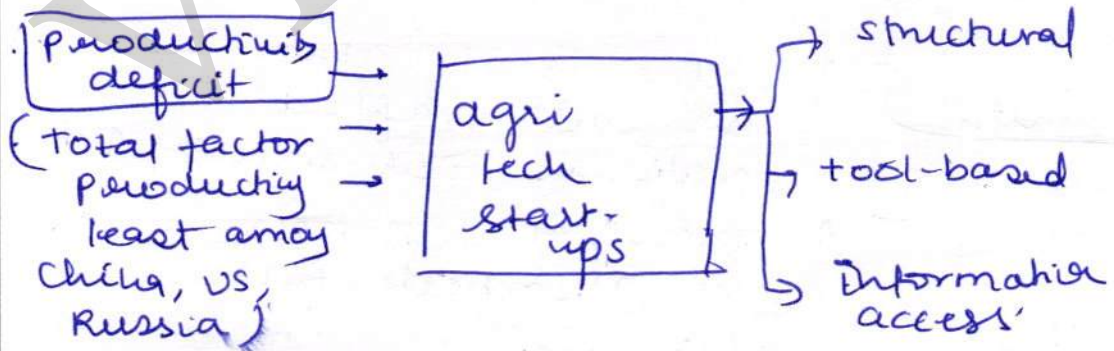 . Productivity
deficit
(Total factor
Productivity
least among
China, US,
Russia)
agri
tech
start-
ups
structural
tool-based
Information
access